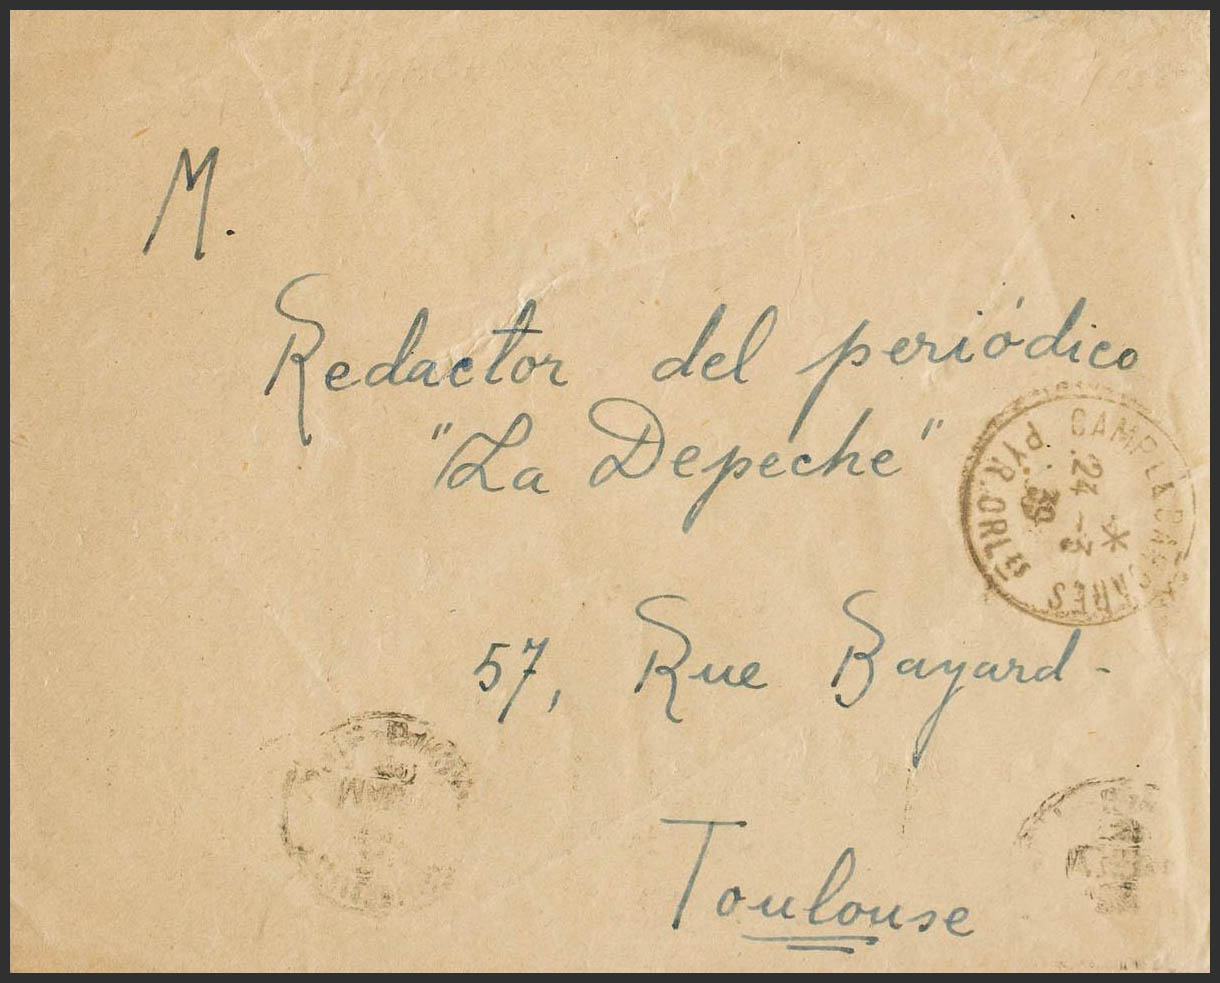 M.
Redactor del periódico
"La Depeche"
57, Rue Bayard-
Toulouse
CAMP LE BARCARES
PYR. ORIles
24 -3
39